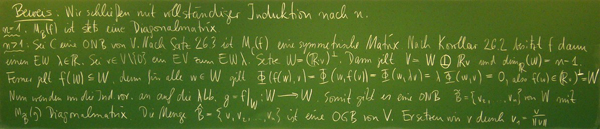 Beweis: Wir schließen mit vollständiger Induktion nach n.
n=1. M_B(f) ist stets eine Diagonalmatrix
n>1: Sei C eine ONB von V. Nach Satz 26.3 ist M_C(f) eine symmetrische Matrix. Nach Korollar 26.2 besitzt f dann
einen EW λ∈ℝ. Sei v∈V\{0} ein EV zum EW λ. Setze W=(ℝv)^⊥. Dann gilt V=W ⊕ ℝv und dim_ℝ(W)=n-1.
Ferner gilt f(W)⊆W, denn für alle w∈W gilt Φ(f(w),v)=Φ(w,f(v))=Φ(w,λv)=λΦ(w,v)=0, also f(w)∈(ℝv)^⊥=W
Nun wenden wir die Ind.vor. an auf die Abb. g=f|_W: W→W. Somit gibt es eine ONB B̃={v_2,...,v_n} von W mit
M_B̃(g) Diagonalmatrix. Die Menge B̂={v,v_2,...,v_n} ist eine OGB von V. Ersetzen von v durch v_1=v/||v||